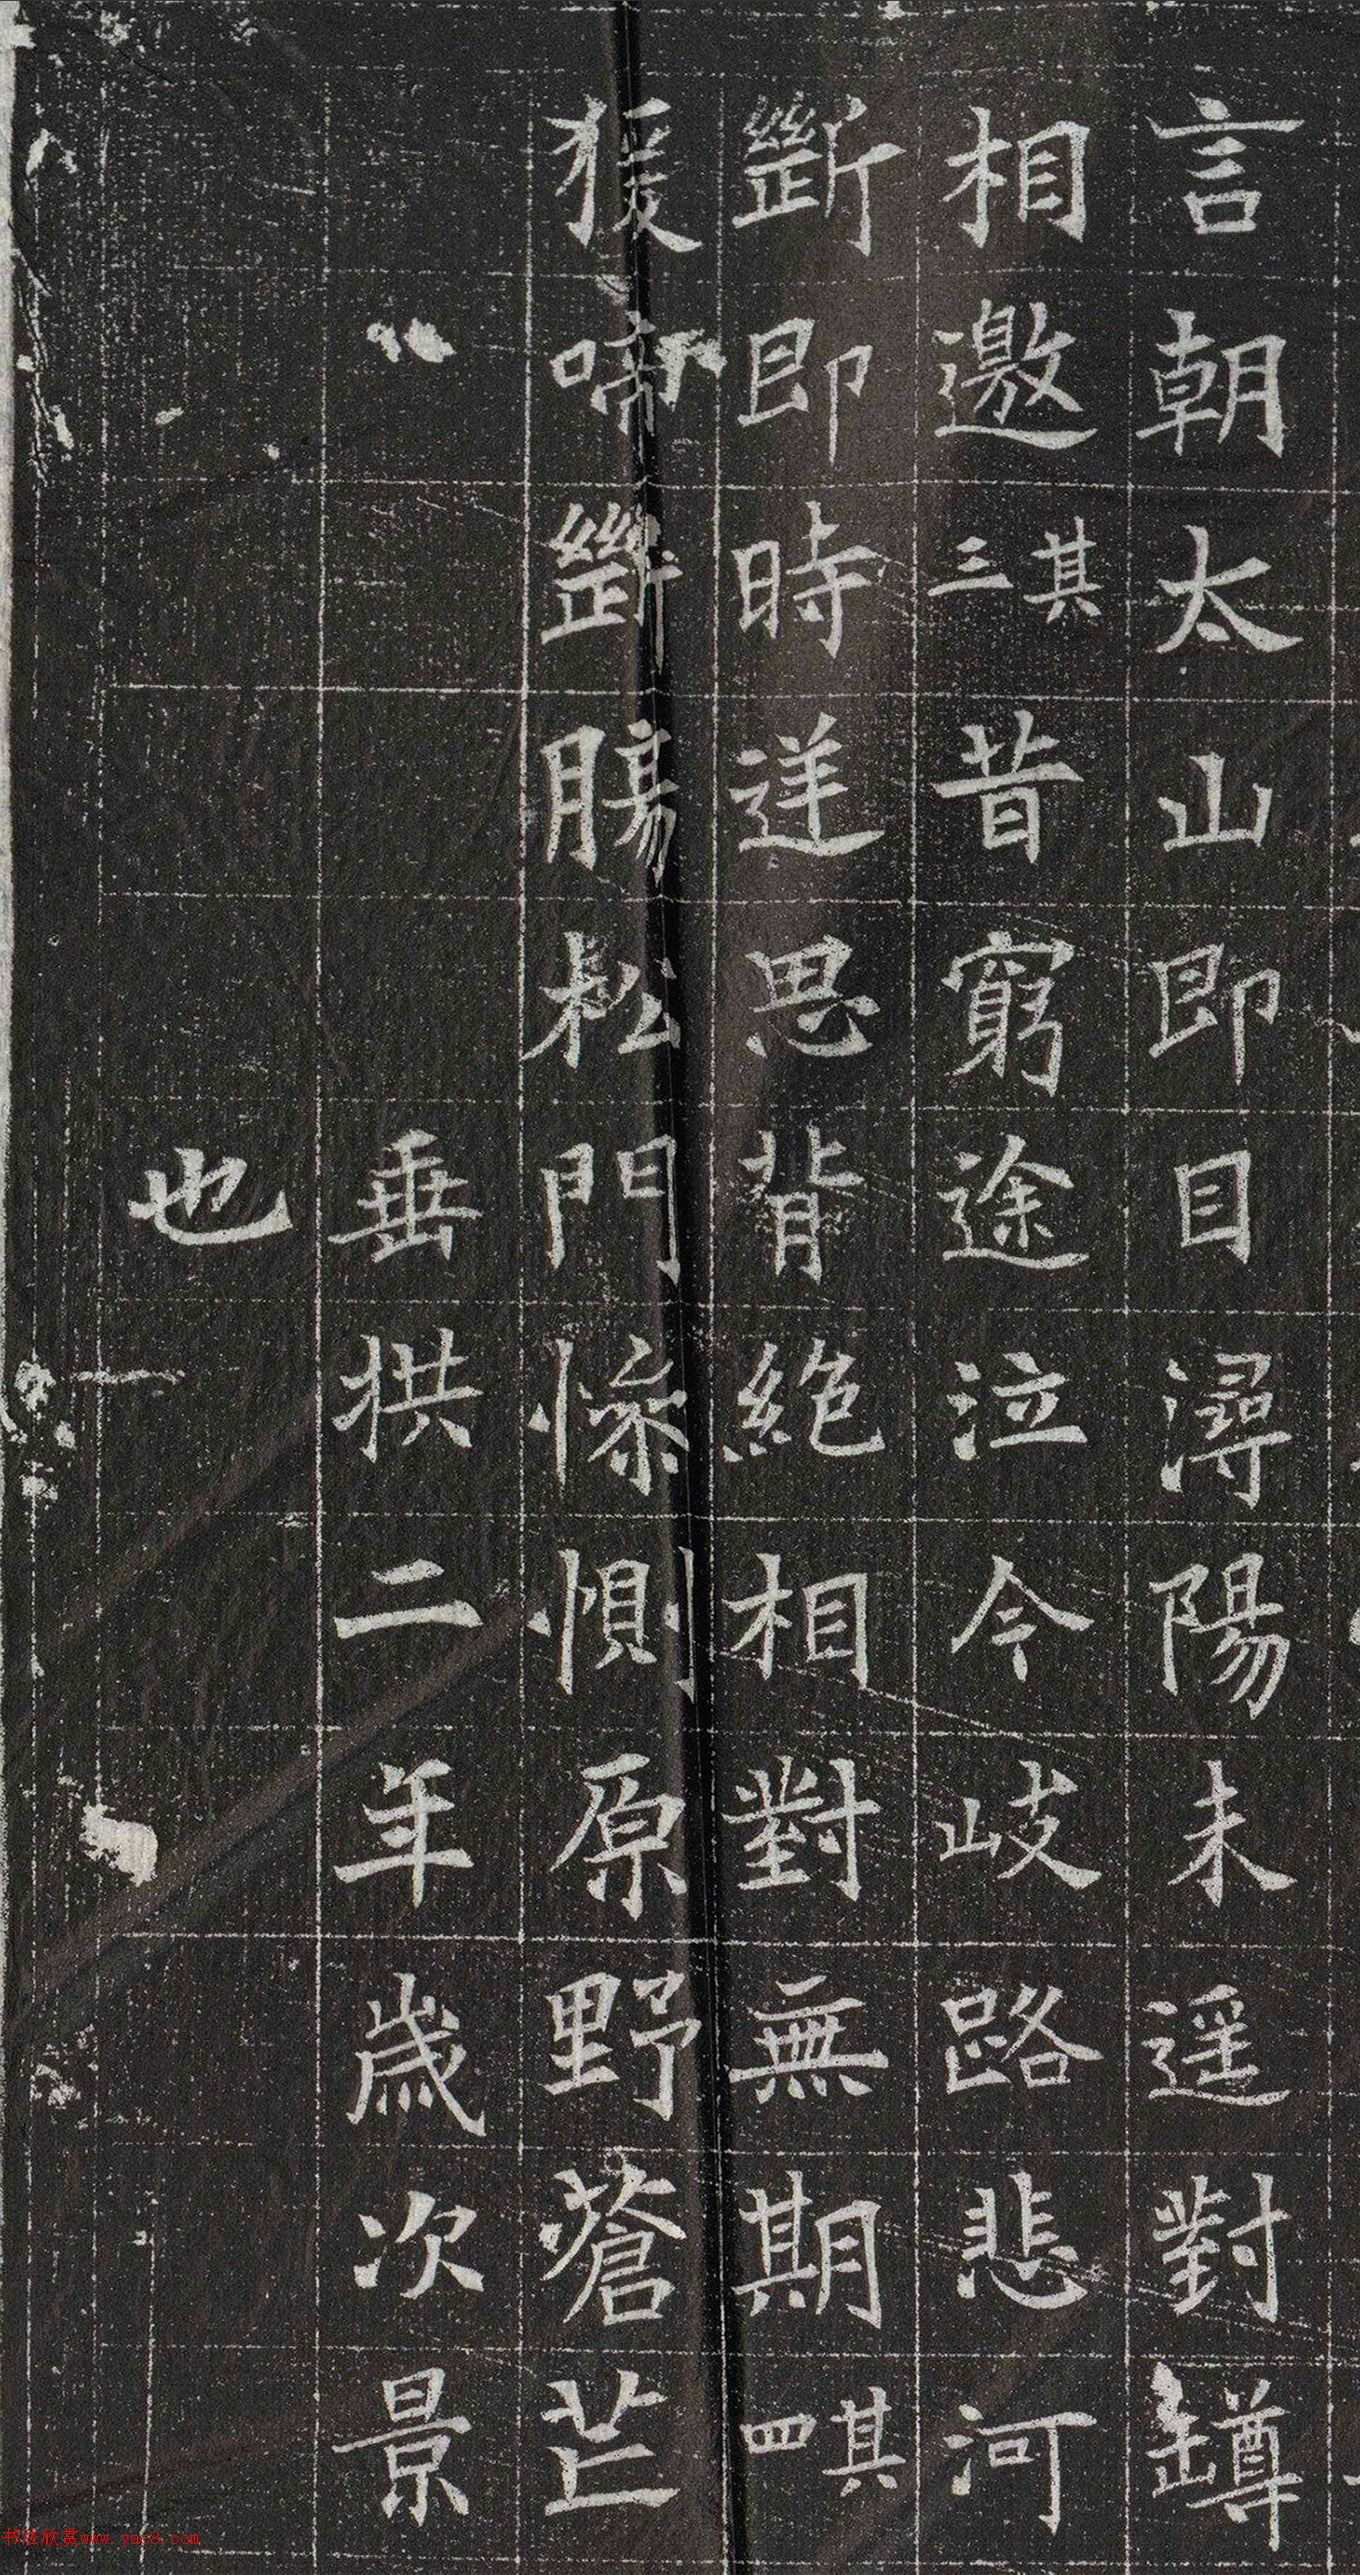 言朝太山即目潯陽未遥對罇
相邀其三昔窮途泣今岐路悲河
斷即時逆思背絶相對無期其四
猨啼斷腸松門慘愴原野蒼芒
垂拱二年歲次景
也
书法欣赏www.yac8.com